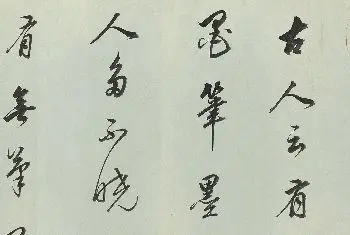 古人云有
墨筆墨
人多不曉
有無筆